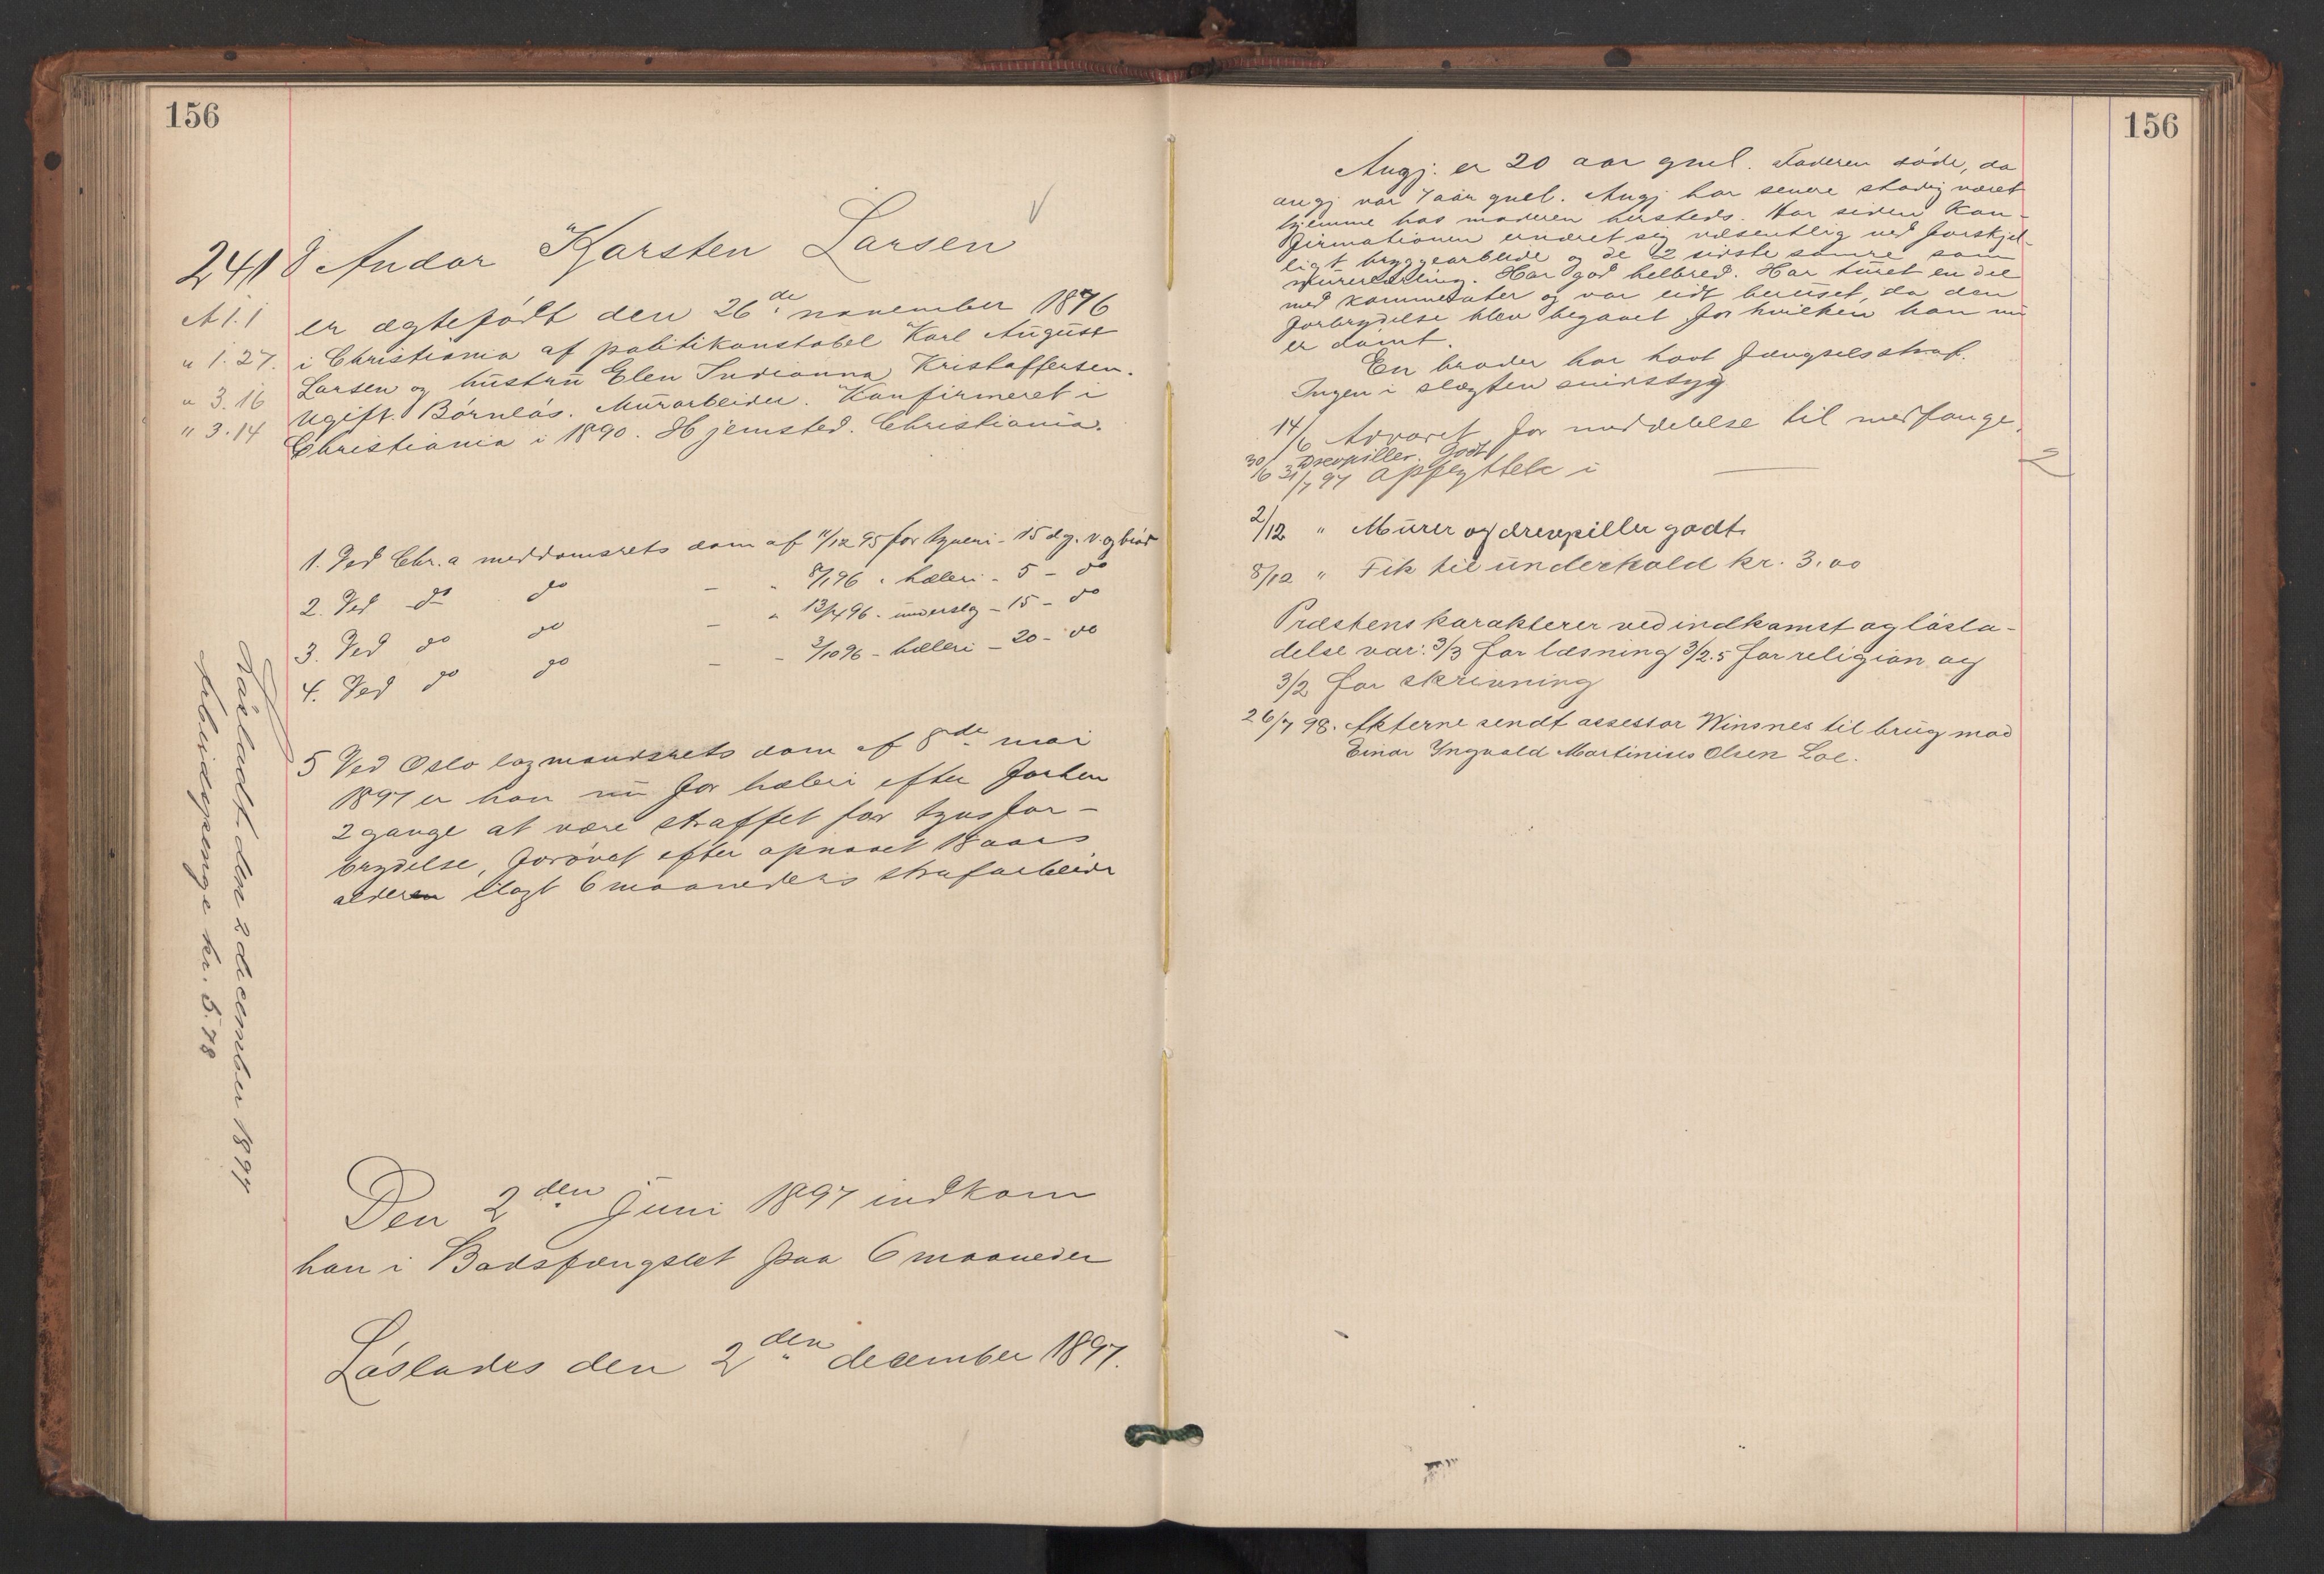 156
2418 Andor Karsten Larsen
A 1.1
" 1.27.
" 3.16
" 3.14
er ægtefødt den 26de november 1876
i Christiania af politikonstabel Karl August
Larsen og hustru Elen Indianna Kristoffersen.
Ugift. Børnløs. Murarbeider. Konfirmeret i
Christiania i 1890. Hjemsted. Christiania.
1. Ved Chr.a meddomsrets dom af 11/12 95 for tyveri - 15 dg. v. og brød
2. Ved do do - " 8/1 96 " hæleri - 5 - do
3. Ved do do - " 13/4 96 - underslg - 15 - do
4. Ved do do - - 3/10 96 - hæleri - 20 - do
5 Ved Oslo lagmandsrets dom af 8de mai
1897 er han nu for hæleri efter forhen
2 gange at være straffet for tyvsfor-
brydelse, forøvet efter opnaaet 18 aars
alderen ilagt 6 maaneders strafarbeide
Løsladt den 2 december 1897
Arbeidspenge kr. 5.78
Den 2den Juni 1897 indkom
han i Bodsfængslet paa 6 maaneder
Løslades den 2den december 1897.
156
Angj. er 20 aar gml. Faderen døde, da
angj var 7 aar gml. Angj har senere stadig været
hjemme hos moderen hersteds. Har siden kon-
firmationen ernæret sig væsentlig ved forskjel-
ligt bryggearbeide og de 2 sidste somre som
murerlærling. Har god helbred. Har turet en del
med kammerater og var lidt beruset, da den
forbrydelse blev begaaet for hvilken han nu
er dømt.
En broder har havt fængselsstraf.
Ingen i slægten sindssyg
14/6 Advaret for meddelelse til medfange.
30/6 Drevpiller. Godt
31/7 97 Opflyttet i 2
2/12 " Murer og drevpiller godt.
8/12 " Fik til underhold kr. 3.00
Præstens karakterer ved indkomst og løsla-
delse var: 3/3 for læsning 3/2.5 for religion og
3/2 for skrivning
26/7 98. Akterne sendt assessor Winsnes til brug mod
Einar Ingvald Martinius Olsen Loe.